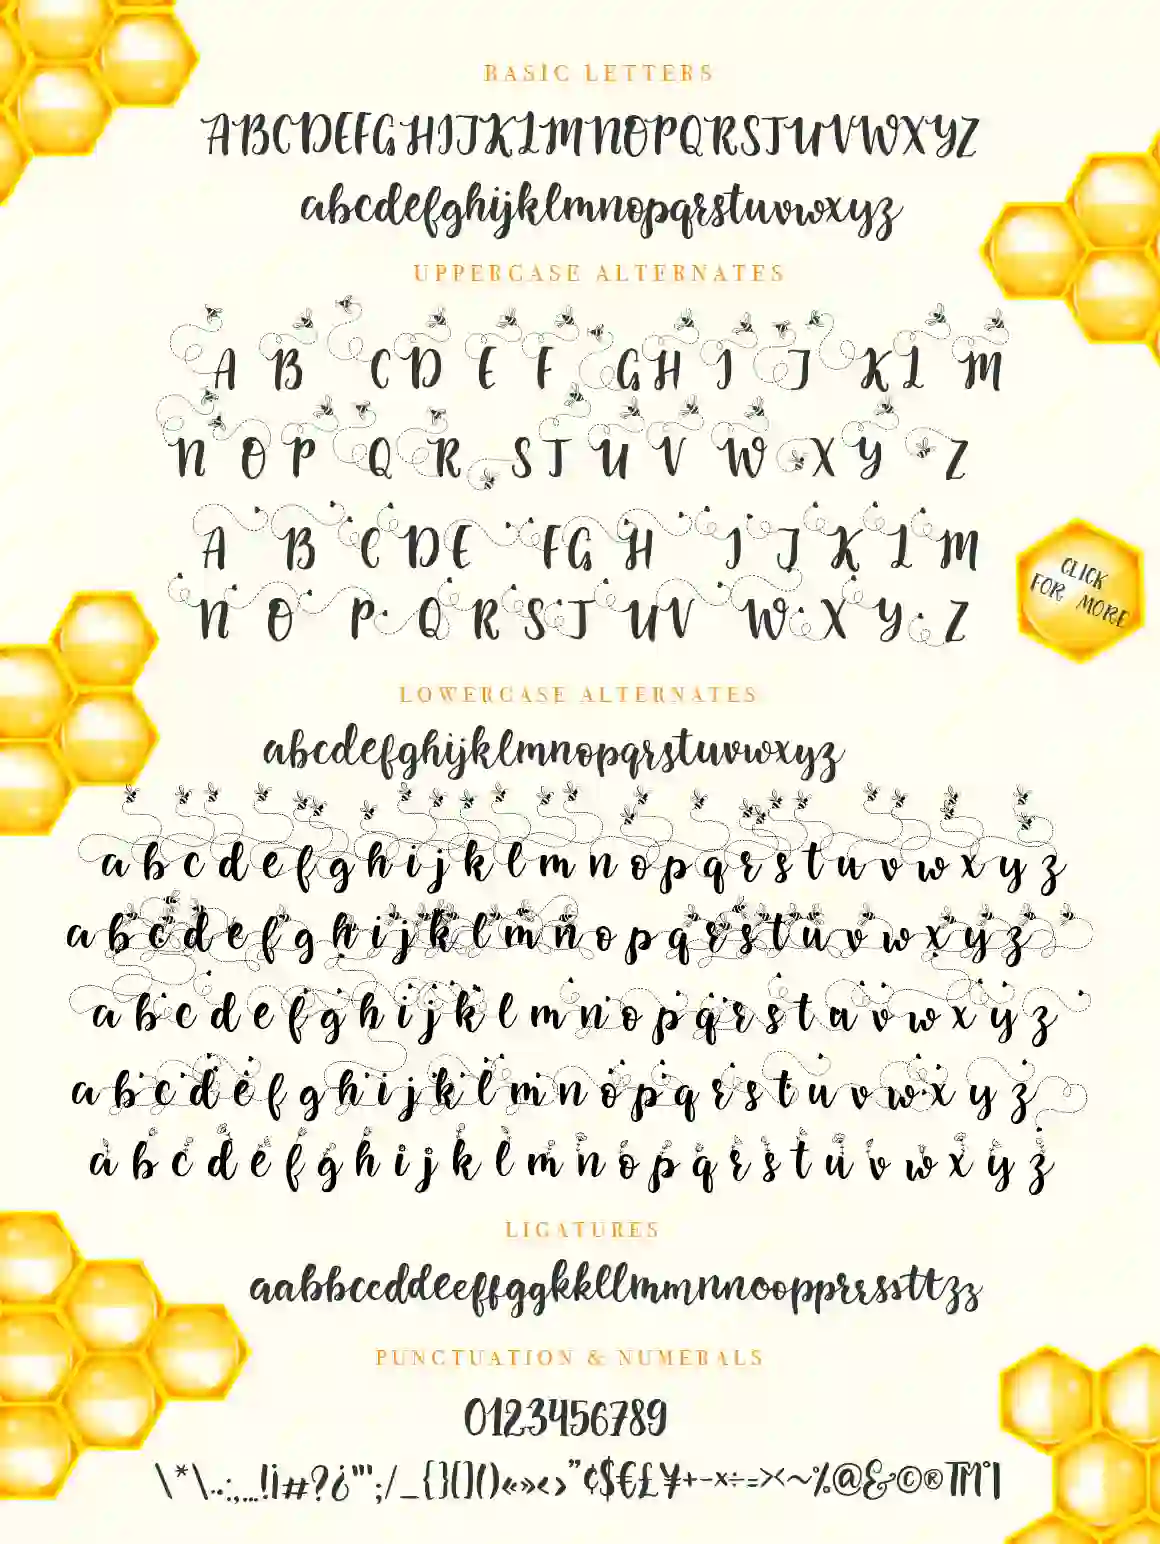 BASIC LETTERS
ABCDEFGHIJKLMNOPQRSTUVWXYZ
abcdefghijklmnopqrstuvwxyz
UPPERCASE ALTERNATES
A B C D E F G H I J K L M
N O P Q R S T U V W X Y Z
A B C D E F G H I J K L M
N O P Q R S T U V W X Y Z
CLICK
FOR MORE
LOWERCASE ALTERNATES
abcdefghijklmnopqrstuvwxyz
a b c d e f g h i j k l m n o p q r s t u v w x y z
a b c d e f g h i j k l m n o p q r s t u v w x y z
a b c d e f g h i j k l m n o p q r s t u v w x y z
a b c d e f g h i j k l m n o p q r s t u v w x y z
a b c d e f g h i j k l m n o p q r s t u v w x y z
LIGATURES
aabbccddeeffggkkllmmnnoopprrssttzz
PUNCTUATION & NUMERALS
0123456789
\*\·.:,…!¡#?¿"';/_{}[]()«»‹›"¢$€£¥+-×÷=><~%@&©®™°|